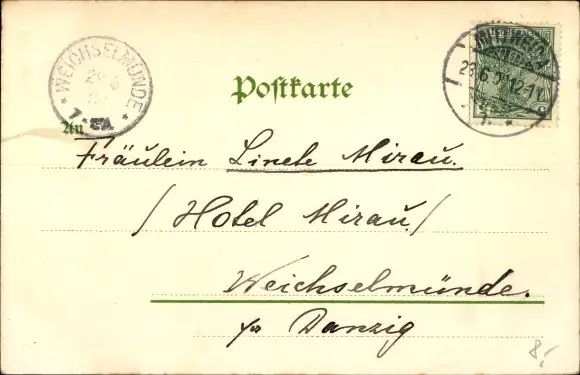 WEICHSELMÜNDE
29 6
Postkarte
23.6.
12-1V
An
Fräulein Linete Mirau.
/ Hotel Mirau /
Weichselmünde.
Danzig
8,-